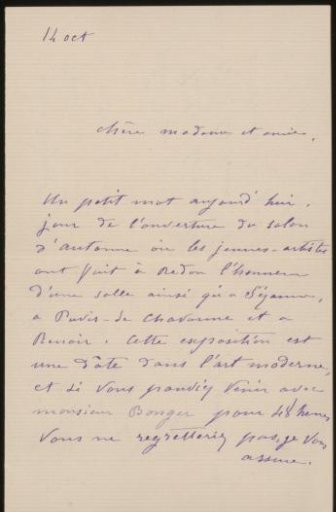 14 oct
chère madame et amie,
Un petit mot aujourd'hui,
jour de l'ouverture du salon
d'automne où les jeunes-artistes
ont fait à Redon l'honneur
d'une salle ainsi qu'a Cézanne,
a Puvis-de Chavanne et a
Renoir. Cette exposition est
une date dans l'art moderne,
et si vous pouviez venir avec
monsieur Bonger pour 48 heures
vous ne regretteriez pas, je vous
assure.